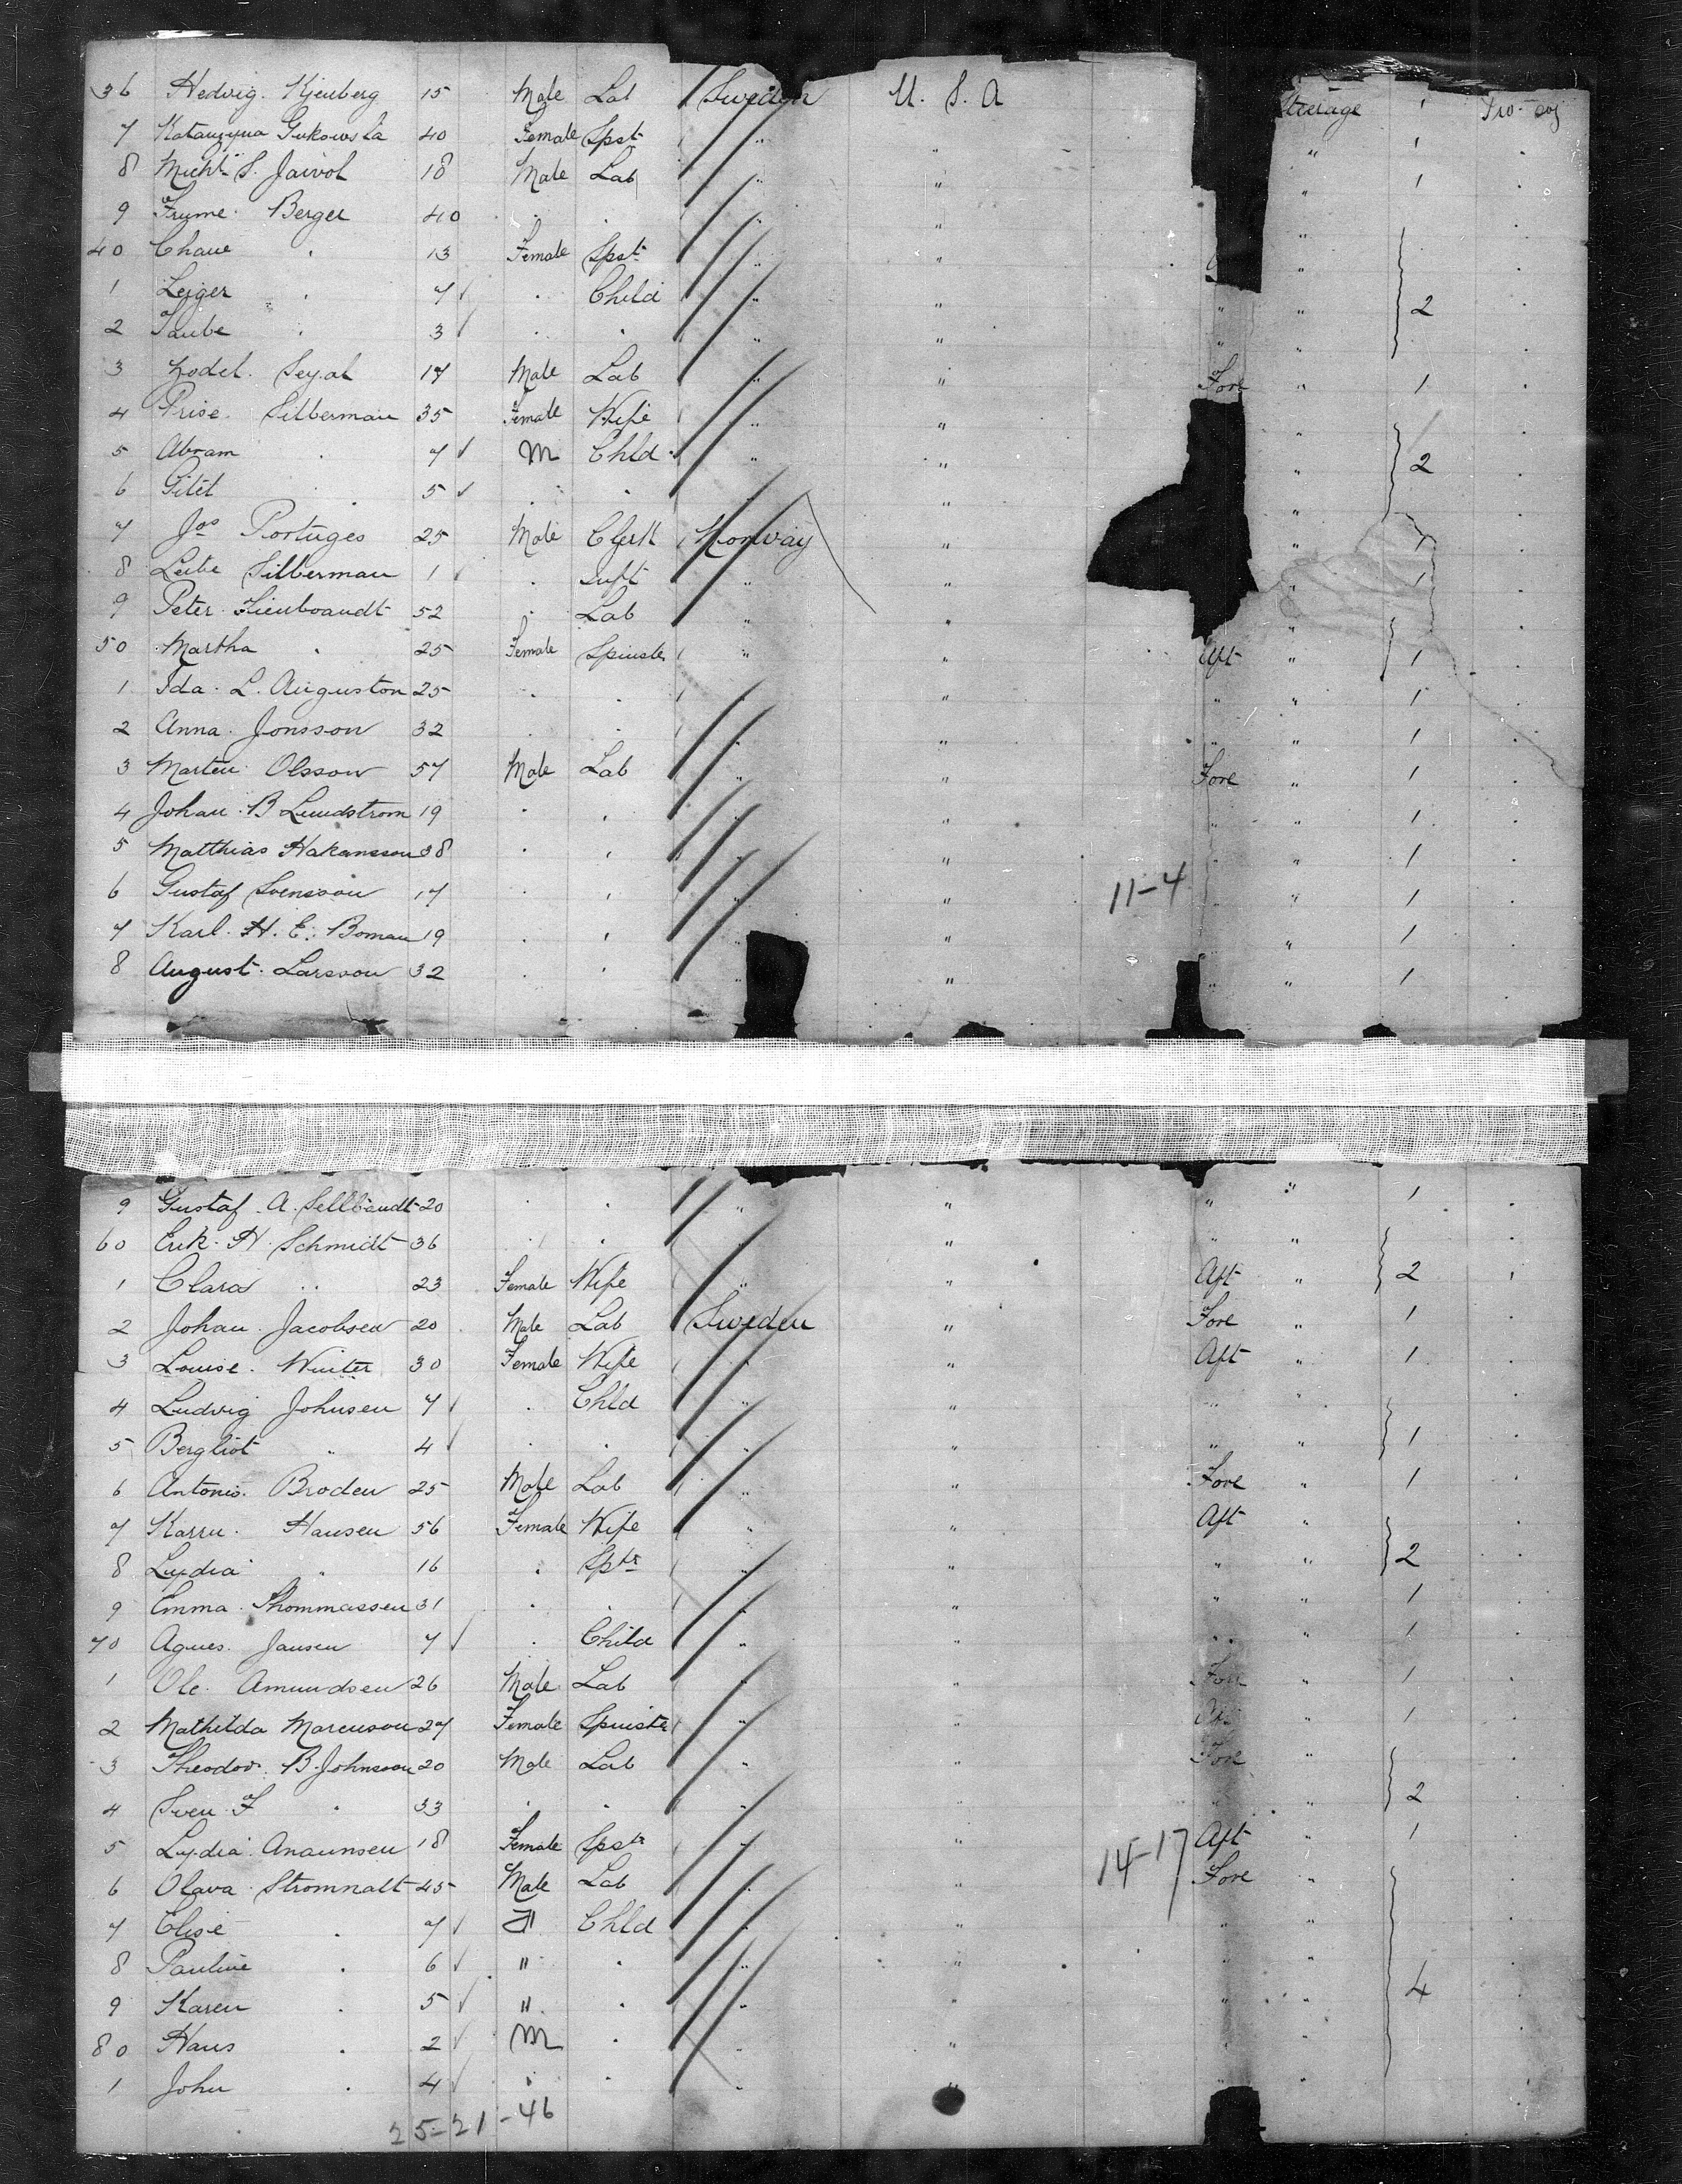 36 Hedvig. Kjenberg 15 Male Lab Sweden U. S. A Steerage 1
7 Katarzyna Gukowska 40 Female Spst " " " 1
8 Micht S. Jaivol 18 Male Lab " " " 1
9 Frume. Berger 40 . . " " "
40 Chave . 13 Female Spst " " "
1 Leiger . 7 . Child " " " " 2
2 Taube . 3 . . " " " "
3 Zodel. Seyal 17 Male Lab " " Fore " 1
4 Prise. Silberman 35 Female Wife " " "
5 Abram . 7 m Chld " " " 2
6 Gitel . 5 . . " "
7 Jos Portuges 25 Male Clerk Norway " " 1
8 Leibe Silberman 1 . Inft " " " 1
9 Peter. Lienbrandt 52 . Lab " " "
50 Martha . 25 Female Spinster " " Aft " 1
1 Ida. L. Auguston 25 . . " " " 1
2 Anna. Jonsson 32 . . " " " " 1
3 Marten Olsson 57 Male Lab " " Fore " 1
4 Johan. B Lundstrom 19 . . " " " 1
5 Matthias Hakansson 38 . . " " " 1
6 Gustaf Svensson 17 . . " 11-4 " 1
7 Karl. H. E. Boman 19 . . " " 1
8 August. Larsson 32 . . " " " " 1
9 Gustaf. A. Sellbandt 20 . . " " " " 1
60 Erik. H. Schmidt 36 . . " " " "
1 Clara " 23 Female Wife " " Aft " 2
2 Johan. Jacobsen 20 Male Lab Sweden " Fore " 1
3 Louise. Winter 30 Female Wife " " Aft " 1
4 Ludvig Johnsen 7 . Chld " " " "
5 Bergliot " 4 . . " " " " 1
6 Antonis. Broden 25 Male Lab " " Fore " 1
7 Karru. Hansen 56 Female Wife " " Aft "
8 Lydia " 16 . Sptr " " " " 2
9 Emma. Thommassen 31 . . " " " " 1
70 Agnes. Jansen 7 . Child " " " " 1
1 Ole. Amundsen 26 Male Lab " Fore " 1
2 Mathilda Marcuson 27 Female Spinster " " Aft " 1
3 Theodor. B. Johnsson 20 Male Lab " " Fore "
4 Sven. F . 33 . . " " " " 2
5 Lydia. Anaunsen 18 Female Spstr " " 14-17 Aft " 1
6 Olava. Stromnalt 45 Male Lab " " Fore "
7 Elise . 7 F " Chld " " " "
8 Pauline . 6 " . " " "
9 Karen . 5 " . " " " " 4
80 Hans . 2 m . " " "
1 John . 4 . . " " "
25-21-46